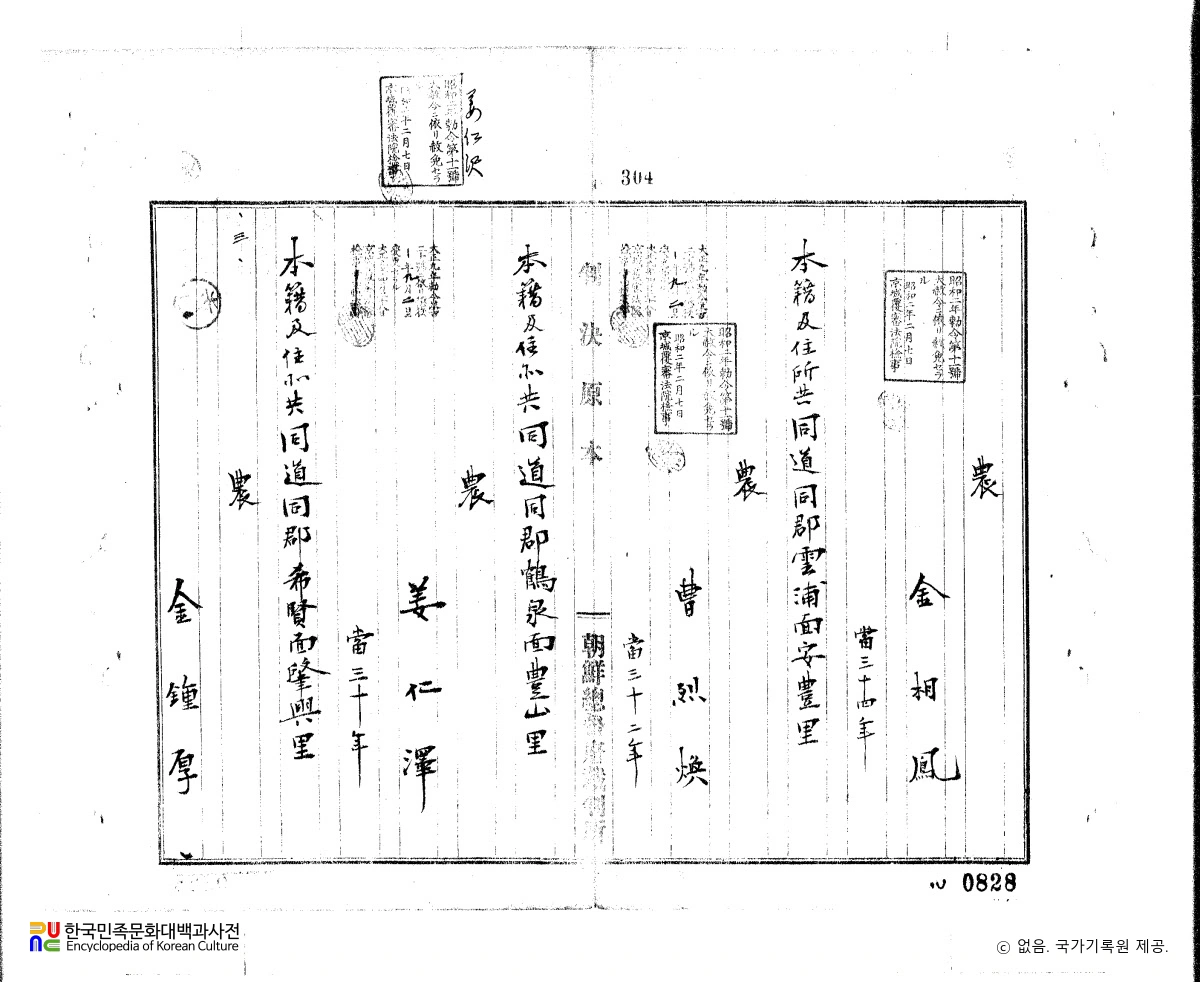 304
農
金相鳳
昭和二年勅令第十一號
大赦令ニ依リ赦免セラ
ル
昭和二年二月七日
京城覆審法院檢事
當三十四年
本籍及住所共同道同郡雲浦面安豊里
農
曹烈煥
昭和二年勅令第十一號
大赦令ニ依リ赦免セラ
ル
昭和二年二月七日
京城覆審法院檢事
當三十二年
判決原本
朝鮮總督府裁判所
本籍及住所共同道同郡鶴泉面豊山里
農
姜仁澤
姜仁沢
昭和二年勅令第十一號
大赦令ニ依リ赦免セラ
十二月七日
京城覆審法院檢事
大正九年勅令
當三十年
本籍及住所共同道同郡希賢面肇興里
農
三
金鍾厚
0828
한국민족문화대백과사전
Encyclopedia of Korean Culture
ⓒ 없음. 국가기록원 제공.